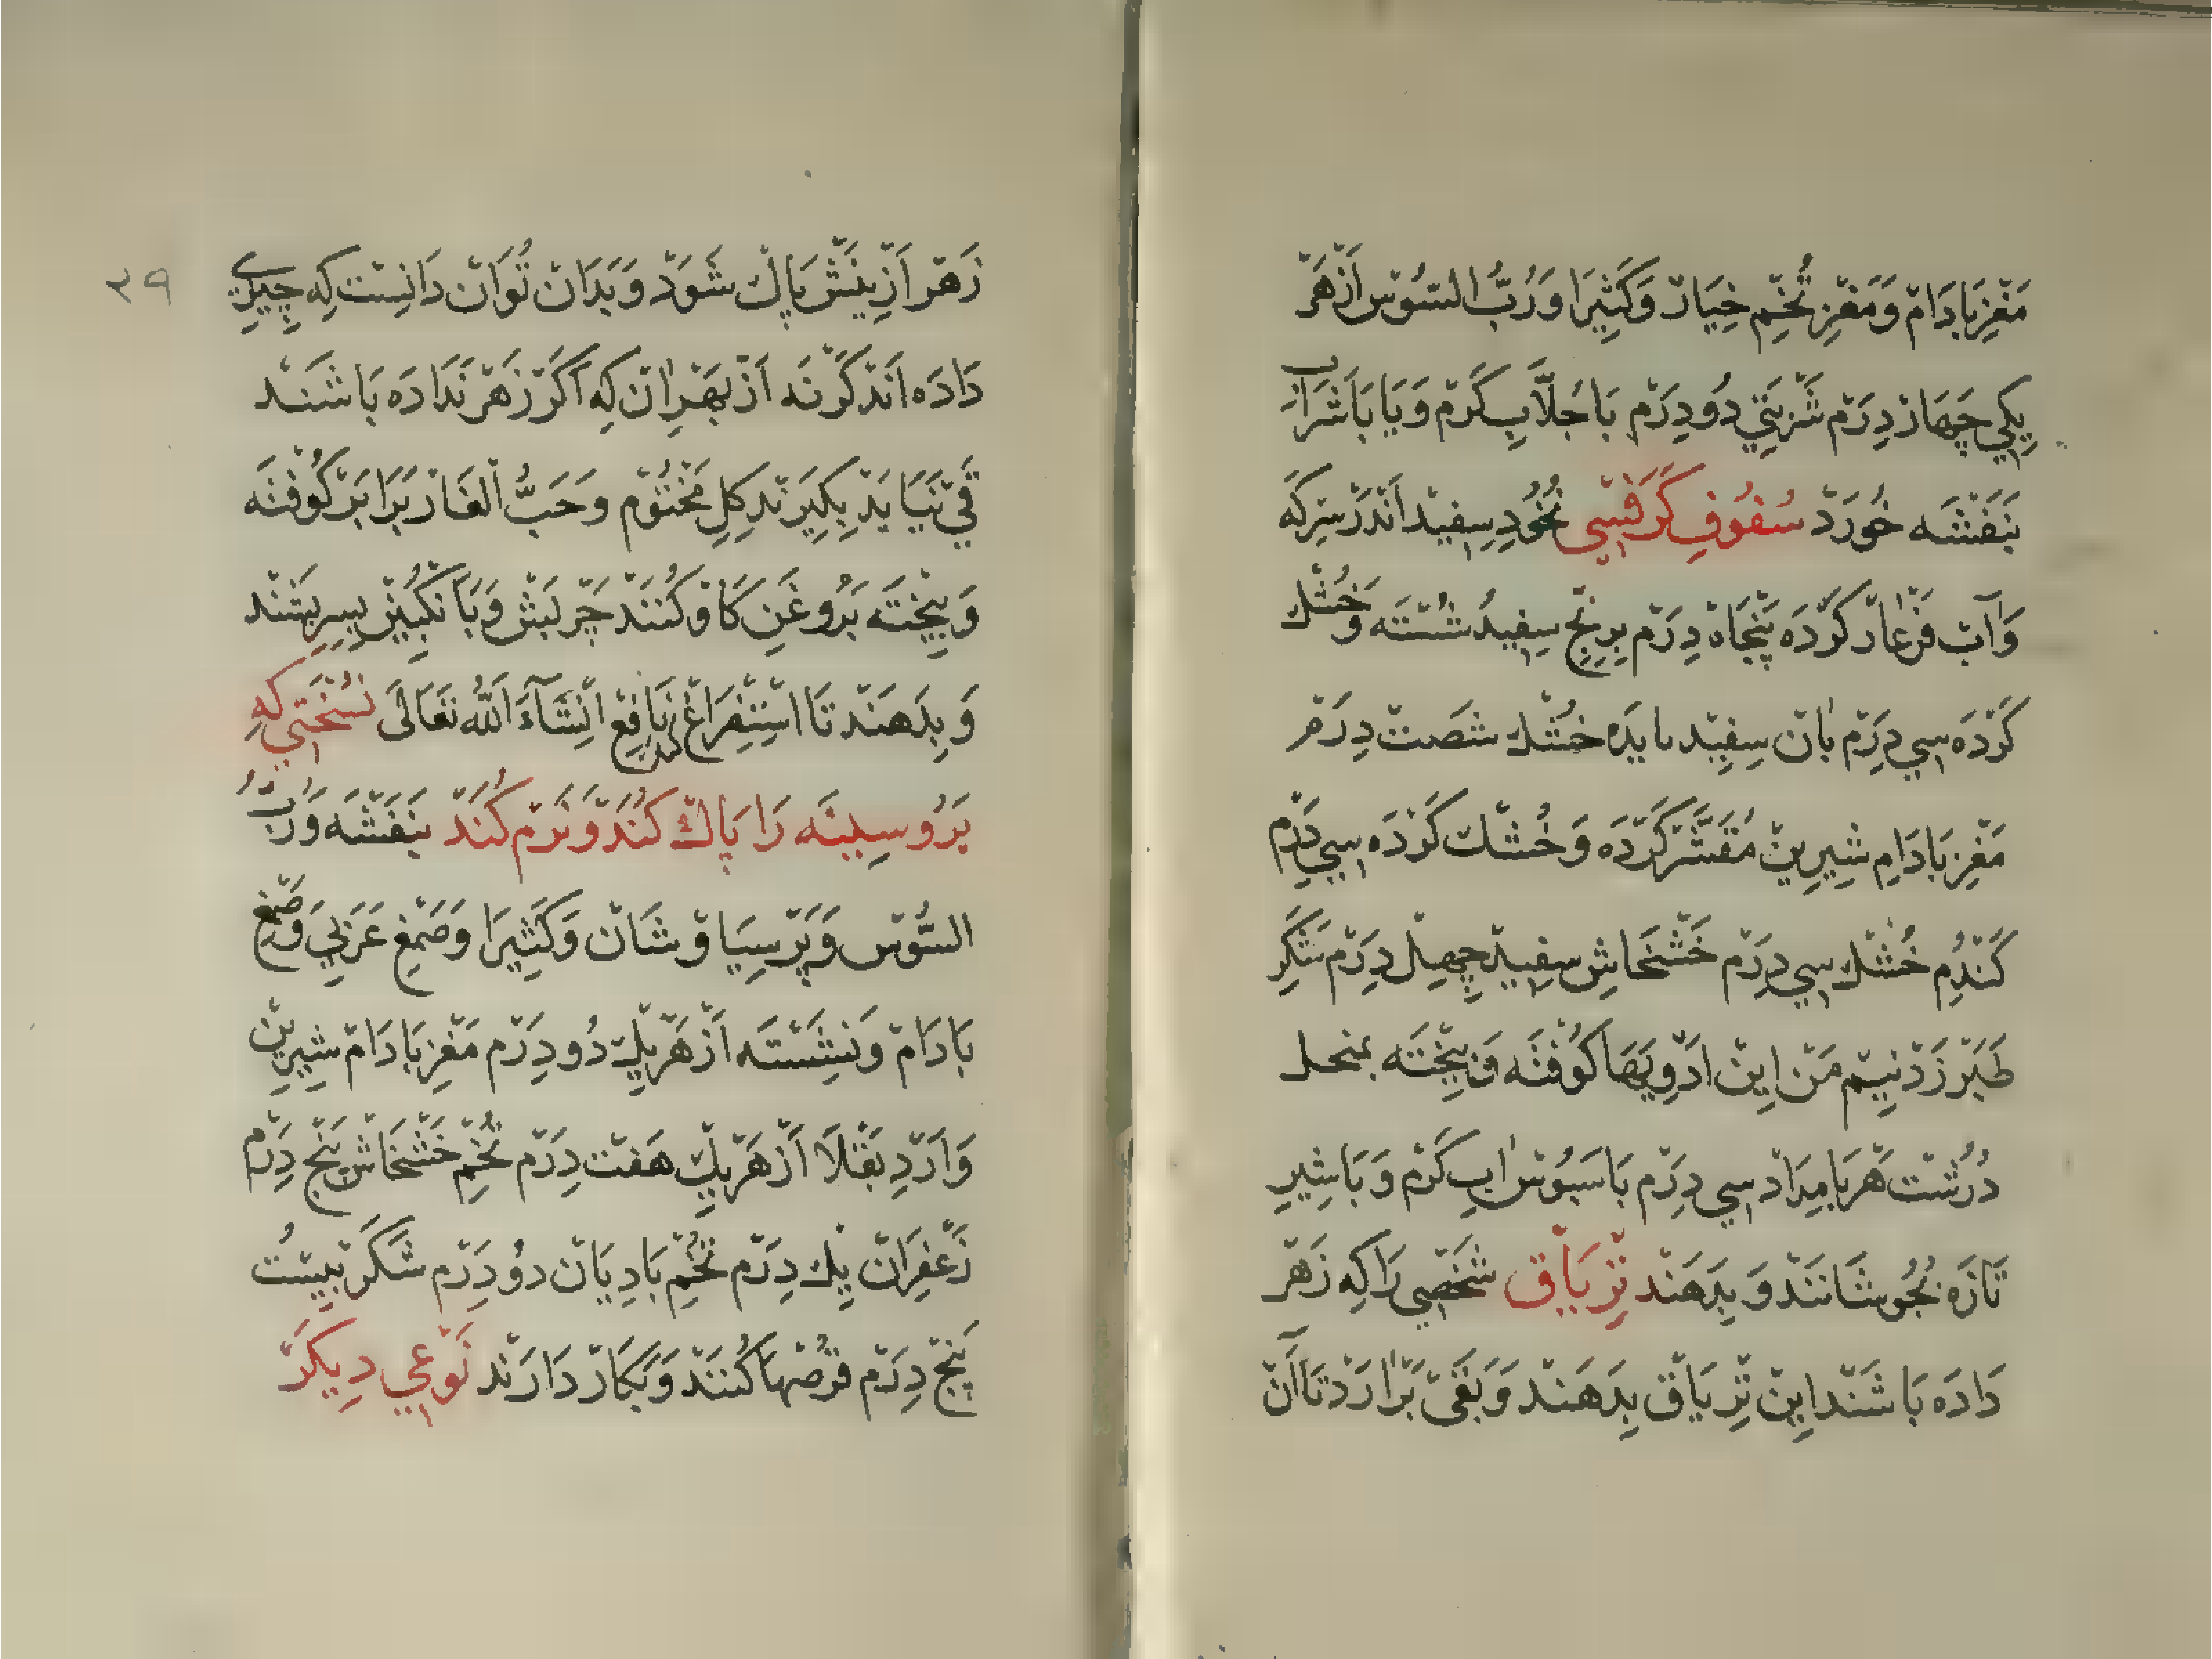 مَغْزِ بَادَامْ وَمَغْزِ تُخْمِ خِيَارْ وَكَثِيرَا وَرُبُّ السُّوْسْ اَزْ هَرْ
يِكِي چَهَارْ دِرَمْ شَرْبَتِي دُو دِرَمْ بَا جُلَّابِ كَرْمْ وَ يَا بَا شَرَابِ
بَنَفْشَه خُورَدْ سُفُوفِ كَرَفْسِي نُخُودِ سِفِيدْ اَنْدَرْ سِرْكَه
وَآبْ فَرْغَارْ كَرْدَه پَنْجَاهْ دِرَمْ بِرِنْجِ سِفِيدْ شُسْتَه وَ خُشْك
كَرْدَه سِي دِرَمْ نَانْ سِفِيدْ خُشْك شَصَتْ دِرَمْ
مَغْزِ بَادَامِ شِيرِينْ مُقَشَّرْ كَرْدَه وَ خُشْك كَرْدَه سِي دِرَمْ
كَنْدُمِ خُشْك سِي دِرَمْ خَشْخَاشِ سِفِيدْ چِهِلْ دِرَمْ شَكَرِ
طَبَرْزَدْ نِيمْ مَنْ اِينْ اَدْوِيَهَا كُوْفْتَه وَ بِيخْتَه بمنخل
دُرُشْت هَرْ بَامِدَادْ سِي دِرَمْ بَا سَبُوْسْ ابِ كَرْمْ وَ بَا شِيرِ
تَازَه بُجُوشَانَنْدْ وَ بِدَهَنْد تِرْيَاقْ شَخْصِي رَا كِه زَهْرْ
دَادَه بَاشَنْد اِينْ تِرْيَاقْ بِدَهَنْد وَ بَقَيْ بَرْارَدْ تَا آنْ
٣٩
زَهْر اَزْ پِنَشْ پَاكْ شَوَدْ وَ بَدَانْ تُوَانْ دَانِسْت كِه چِيزِي
دَادَه اَنْد كَرْنَه اَزْ بَهْرِ انْ كِه اَكَرْ زَهْرْ نَدَادَه بَاشَنْد
قَيْ نَيَايَدْ بِكِيرَنْد كِلِ مَخْتُوْمْ وَ حَبُّ الْغَارْ بَرَابَرْ كُوفْتَه
وَ بِيخْتَه بَرُوغَنِ كَاوْ كُنَنْد چَرْبَشْ وَ بَانْكَبِينْ بِسِرِيشَنْد
وَ بِدَهَنْد تَا اسْتِفْرَاغْ كند نَافِعْ اِنْشَآءَ اَللّٰهُ تَعَالَى نُسْخَتِي كِه
بَرُو سِينَه رَا پَاكْ كُنَدْ وَ نَرْم كُنَدْ بَنَفْشَه وَ رُبُّ
السُّوْسْ وَ پَرْسِيَاوْشَانْ وَكَثِيرَا وَ صَمْغِ عَرَبِي وَ صَمْغِ
بَادَامْ وَ نَشَسْتَه اَزْ هَرْ يِكْ دُو دِرَمْ مَغْزِ بَادَامْ شِيرِينْ
وَ آرْدِ بَقْلَا اَزْ هَرْ يِكْ هَفْتْ دِرَمْ تُخْمِ خَشْخَاشْ پَنْج دِرَمْ
زَعْفِرَانْ يِك دِرَمْ تُخْمِ بَادِيَانْ دُو دِرَمْ شَكَرْ بِيسْت
پَنْجْ دِرَمْ قُرْصْهَا كُنَنْدْ وَ بَكَارْ دَارَنْد نَوْعِي دِيكَرْ